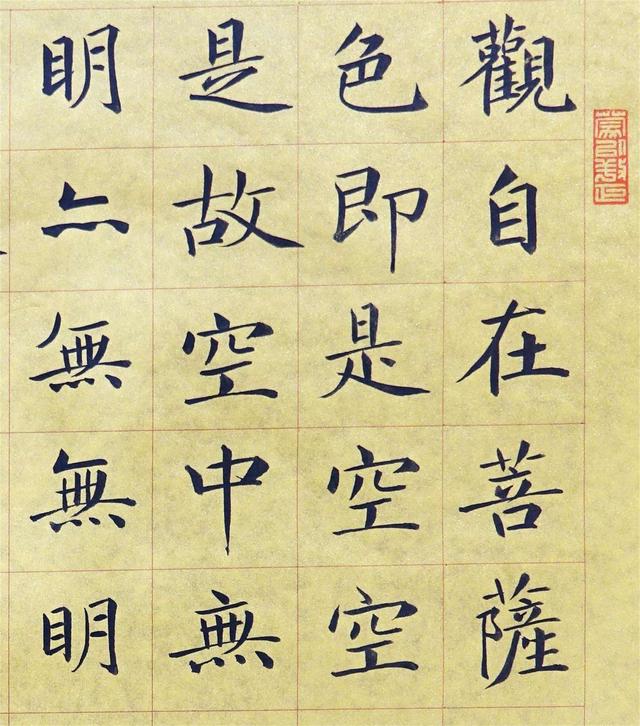 觀自在菩薩
色即是空空
是故空中無
明亦無無明